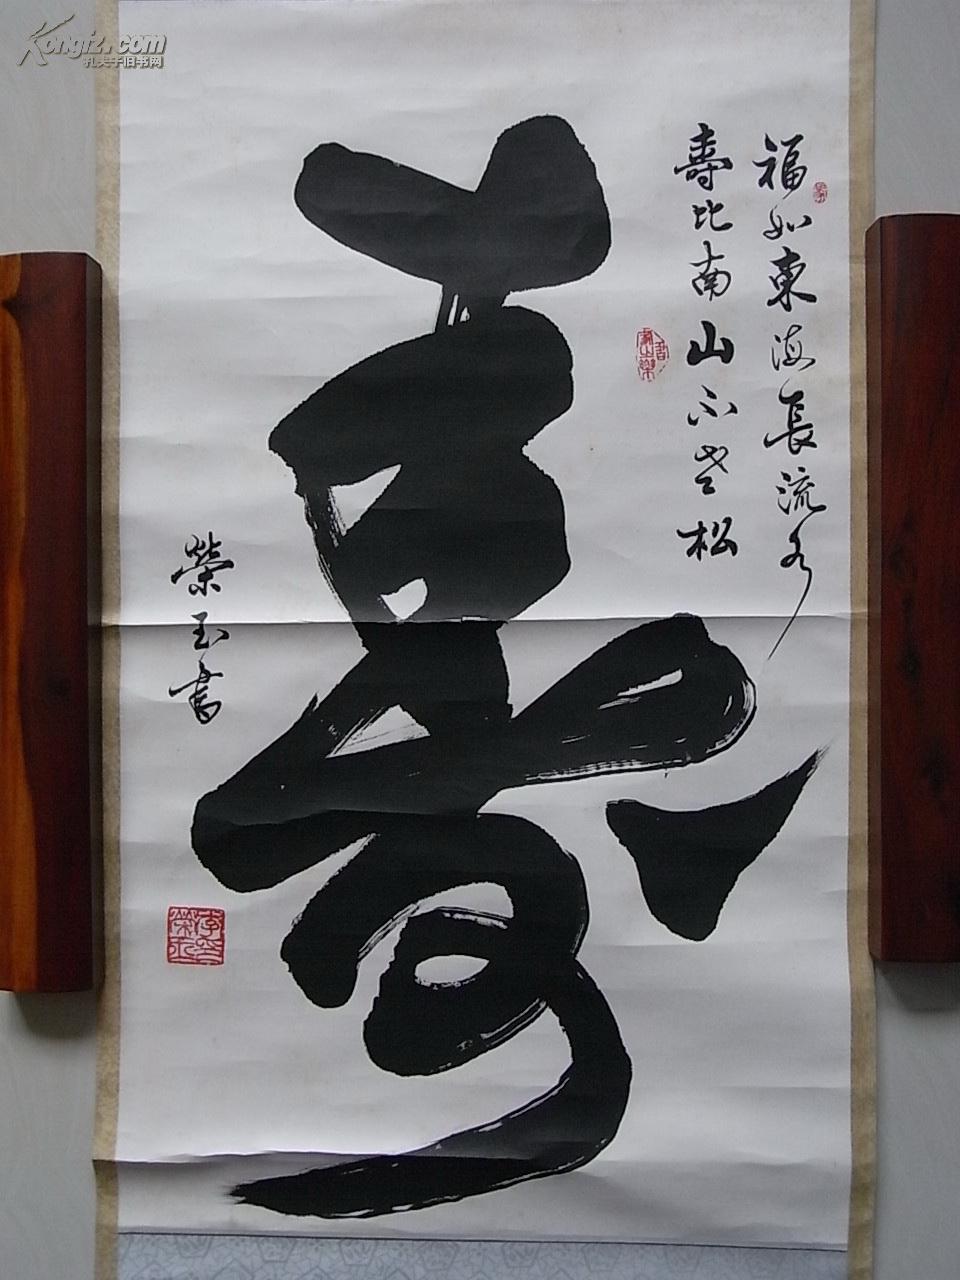 福如東海長流水
壽比南山不老松
壽
榮玉書
Kongfz.com
孔夫子旧书网